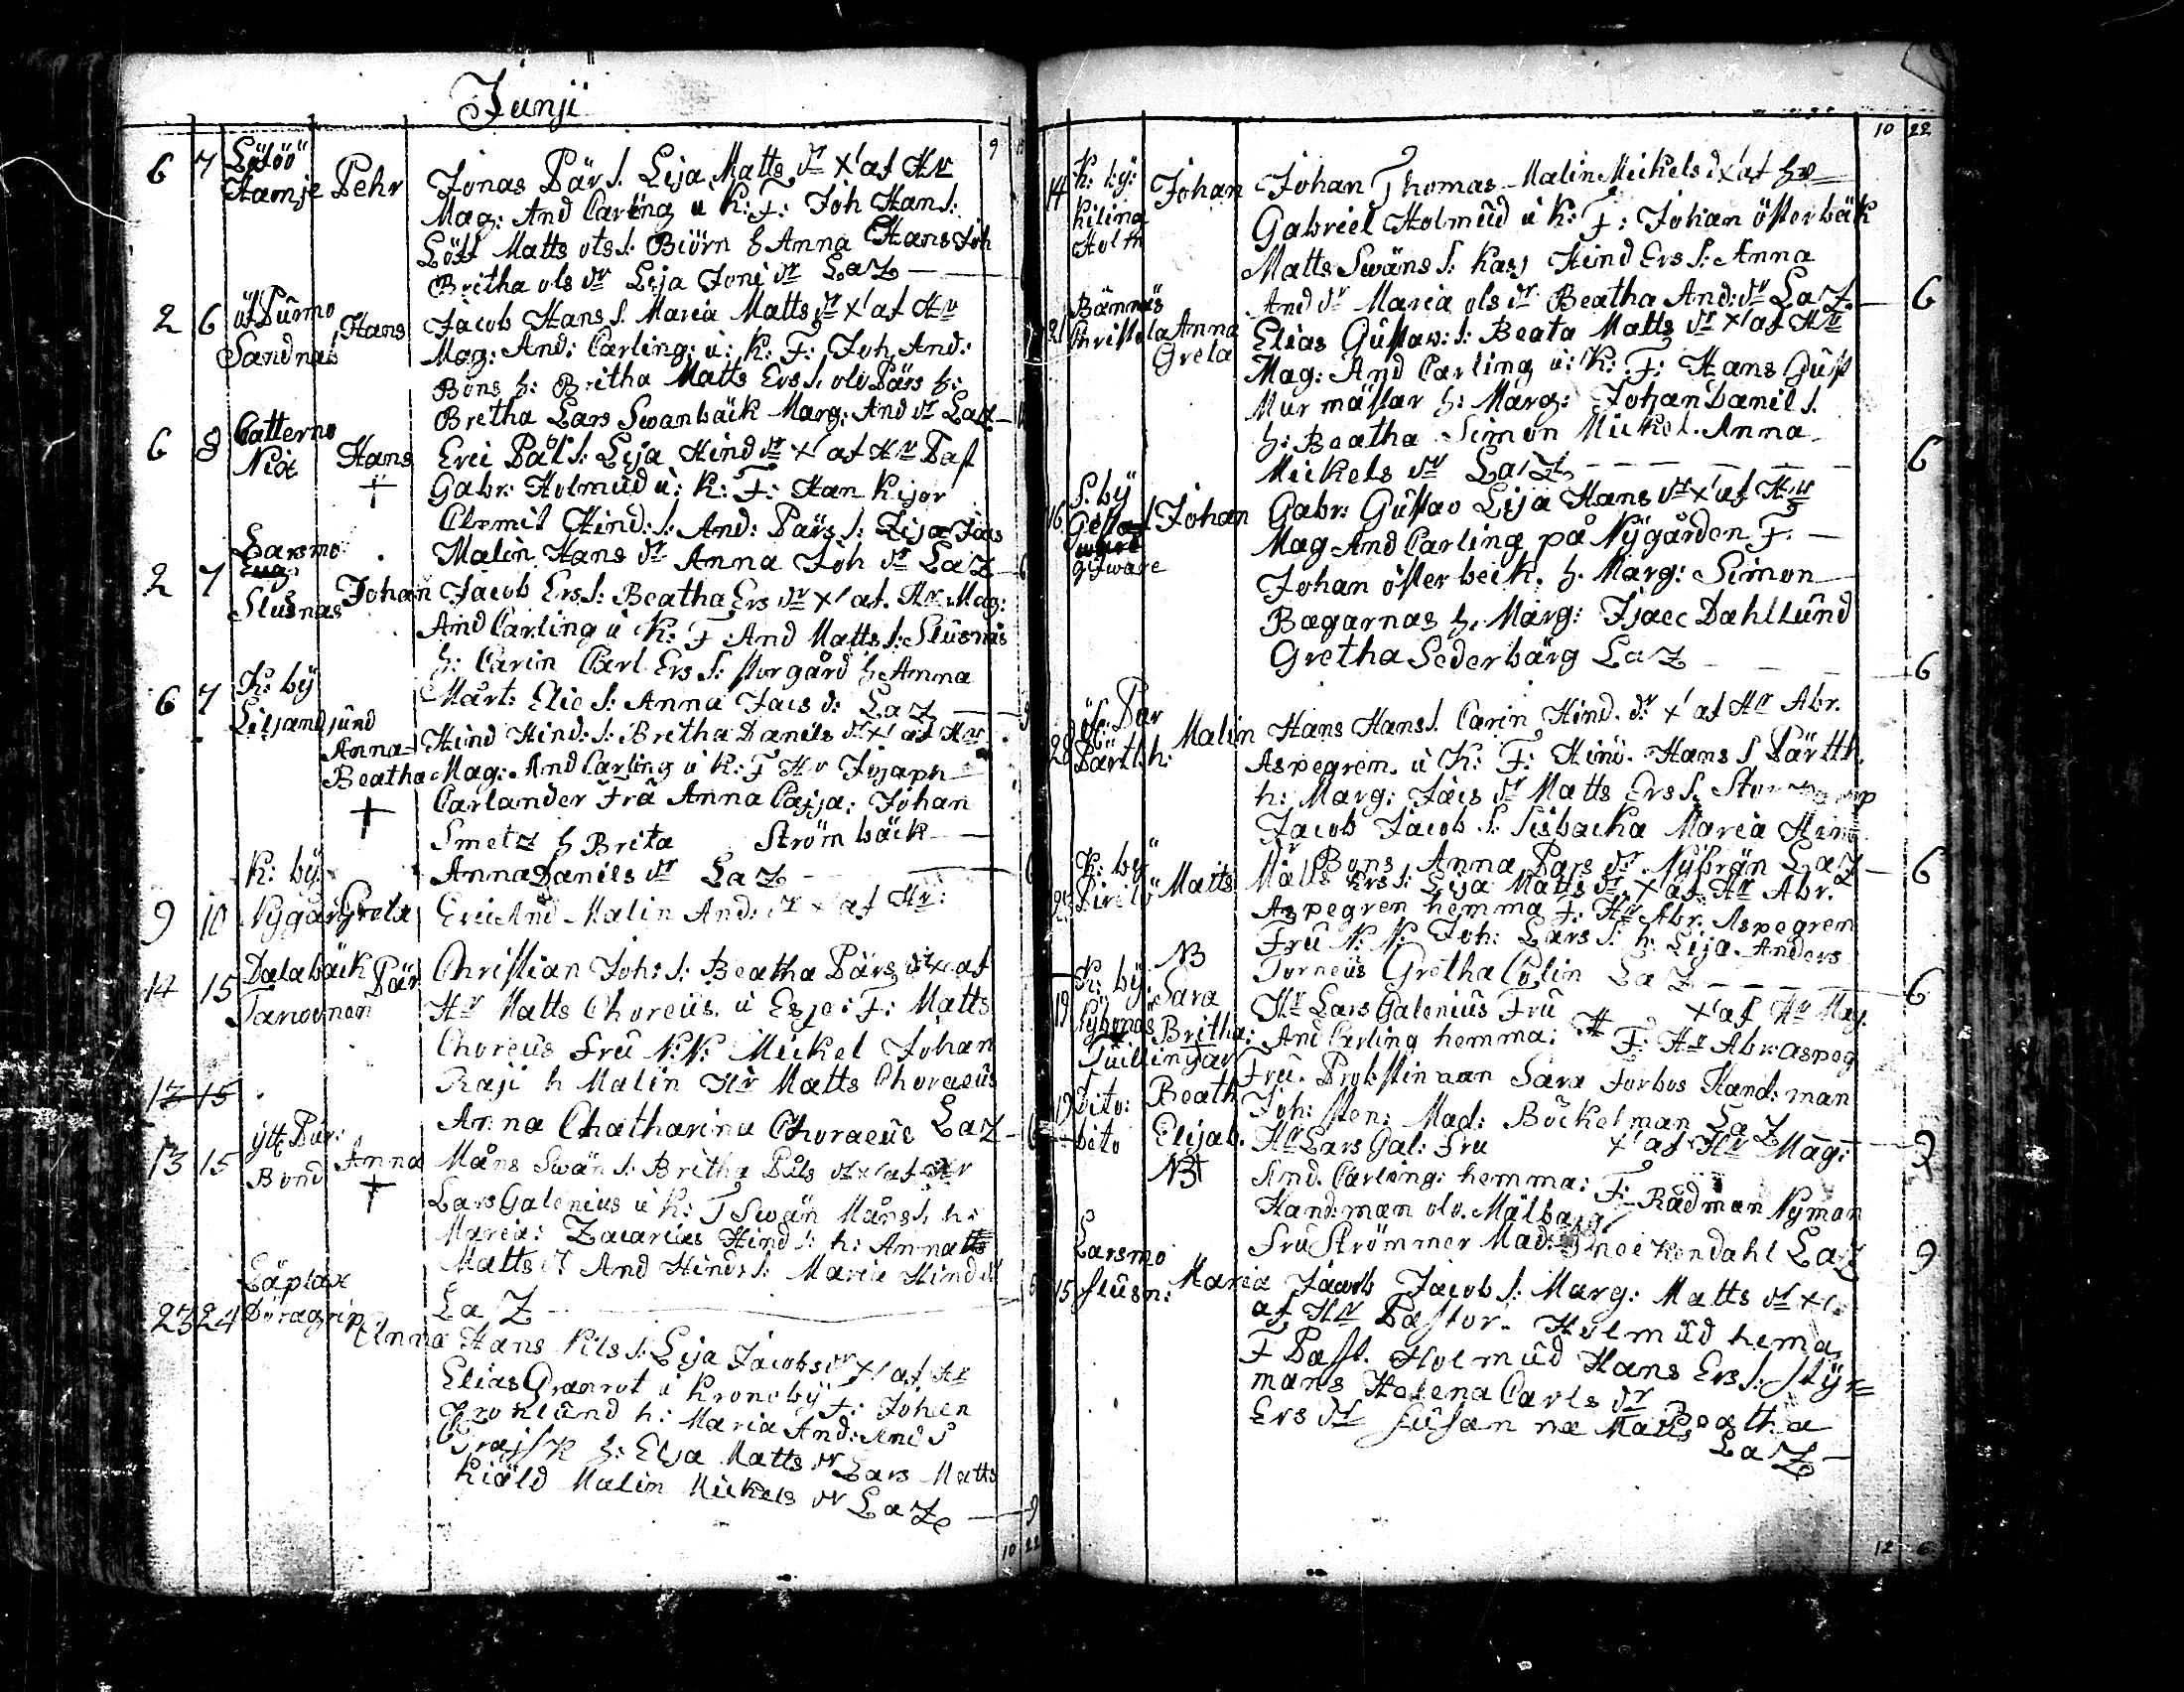 Junji
9
6 7 Löföö
Hamje Pehr Jonas Pär S. Lisa Matts dr x' af Hr
Mag: And Carling u K: F: Joh Hans:
Löff Matts ols S. Biörn h Anna Hans Joh
Britha ols dr Lisa Joni dr LaZ
2 6 öf Purmo
Sandnäs Hans Jacob Hans S. Maria Matts dr x' af Hr
Mag: And: Carling: u: K: F: Joh And:
Bons h: Britha Matts Ers S. olv Pärs h:
Bretha Lars Swanbäck Marg: And dr LaZ
6 8 Catterno
Nix Hans Eric Pål S: Lisa Hind dr x' af Hr Past
+ Gabr: Holmud u: K: F: Han Kijor
Clemit Hind: S: And: Pärs S:
Malin Hans dr Anna Joh dr LaZ 6
Larsmo
2 7 Slusnäs Johan Jacob Ers S: Beatha Ers dr x' af. Hr Mag:
And Carling u K: F And Matts S: Slusnäs
h: Carin Carl Ers S: storgård h: Anna
Mårt: Elie S: Anna Jacs d: LaZ
6 7 K: by
Liljandsund
Anna Hind Hind: S: Bretha Daniels dr x' af Hr
Beatha Mag: And Carling u K: F Hr Josaph
+ Carlander Fru Anna Caija: Johan
Smetz h Brita Strömbäck
Anna Daniels dr LaZ 6
K: by
9 10 Nygår Greta Eric And Malin And: dr x' af Hr:
14 15 Dalabäck Pär Christian Joh: S: Beatha Pärs dr x' af
Hr Matts Choreus. u Esje: F: Matts
Choreus Fru N: N: Mickel Johan
Raji h Malin Hr Matts Choraeus
13 15
Anna Chatharina Choraeus LaZ 6
ytt Pur:
13 15 Bond Anna Måns Swän S: Britha Påls dr x' af Hr
+ Lars Galenius u K: F Swän Måns S. h:
Maria: Zacarias Hind S: h: Anna
Matts dr And Hinds S: Maria Hind dr
LaZ
Läplax
23 24 Döragrip Anna Hans Nils S: Lisa Jacobs dr x' af Hr
Elias Granrot u Kronoby F: Johan
h: Maria And: And S
h: Elsa Matts dr Lars Matts
Kiäld Malin Mickels dr LaZ 9
10 22
10 22
14 K: by:
Kilina
Holm Johan Johan Thomas Malin Mickels d x' af Hr
Gabriel Holmud u K: F: Johan österbäk
Matts Swäns S: Kas Hind Ers S: Anna
And dr Maria ols dr Beatha And: dr LaZ 6
Bännäs
21 Christola Anna
Greta Elias Gustav: S: Beata Matts dr x' af Hr
Mag: And Carling u: K: F: Hans Gust
Mur mästar h: Marg: Johan Daniel S.
h: Beatha Simon Mickel. Anna
Mickels dr LaZ 6
S. by
16 Johan Gabr: Gustav Lisa Hans dr x' af Hr
Mag And Carling på Nygården F:
Johan österbeck. h. Marg: Simon
Bagarnas h. Marg: Isaec Dahllund
Gretha Sederbärg LaZ 6
öf: Pur
28 Pärtth: Malin Hans Hans S. Carin Hind. dr x' af Hr Abr.
Aspegren. u K: F: Hind. Hans S Pärtth.
h: Marg: Jacs dr Matts Ers S. Stor
Jacob Jacob S. Sisbacka Maria Hind
dr Bons Anna Pars dr. Nybrän LaZ 6
K: by
Pirilö Matts Matts Ers S: Lisa Matts dr x' af. Hr Abr.
Aspegren hemma F: Hr Abr. Aspegren
Fru N: N: Joh: Lars S: h: Lisa. Anders
Torneus Gretha Colin LaZ 6
NB
K: by
19 Sara
Britha: Hr Lars Galenius Fru x' af Hr Mag.
And Carling hemma: F: Hr Abr: aspeg
Fru. Probstinnan Sara Forbos Hand: man
19 Dito: Beath Joh: Sten: Mad: Böckelman LaZ 9
Dito Elisab. Hr Lars Gal: Fru x' af Hr Mag:
NB And. Carling: hemma: F: Rådman Nyman
Handman olv. Mälbärg
Fru Strömmer Mad: LaZ 9
Larsmo
15 slusn: Maria Jacob Jacob S: Marg: Matts dr x'
af Hr Pastor. Holmud hema
F Past. Holmud Hans Ers S: styr=
mans Helena Carls dr Beatha
Ers dr Susanna Matts
LaZ
12 6